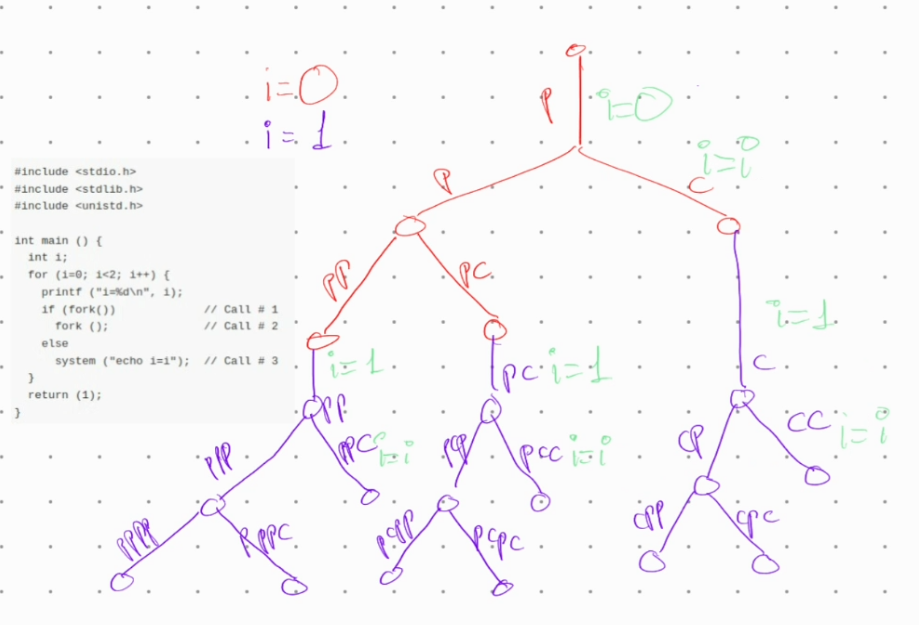 i=0
i=1
#include <stdio.h>
#include <stdlib.h>
#include <unistd.h>
int main () {
int i;
for (i=0; i<2; i++) {
printf ("i=%d\n", i);
if (fork()) // Call # 1
fork (); // Call # 2
else
system ("echo i=i"); // Call # 3
}
return (1);
}
P i=0
P
C i=i
PP PC
i=1
PC i=1
i=1
C
PP
PPP PPC i=i
PCP PCC i=i
CP CC i=i
PPPP PPPC
PCPP PCPC
CPP CPC